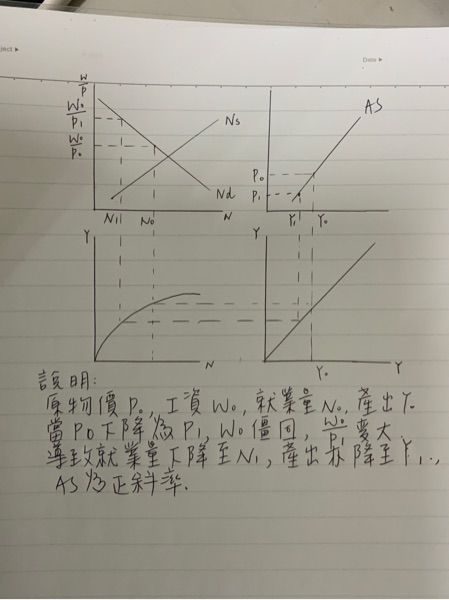 ject ▸
Date ▸
W/P
W₀/P₁
W₀/P₀
Ns
Nd
N₁ N₀ N
AS
P₀
P₁
Y₁ Y₀
Y
N
Y
Y₀ Y
說明:
原物價P₀, 工資W₀, 就業量N₀, 產出Y₀
當P₀下降為P₁, W₀僵固, W₀/P₁變大
導致就業量下降至N₁, 產出亦降至Y₁.,
AS為正斜率.